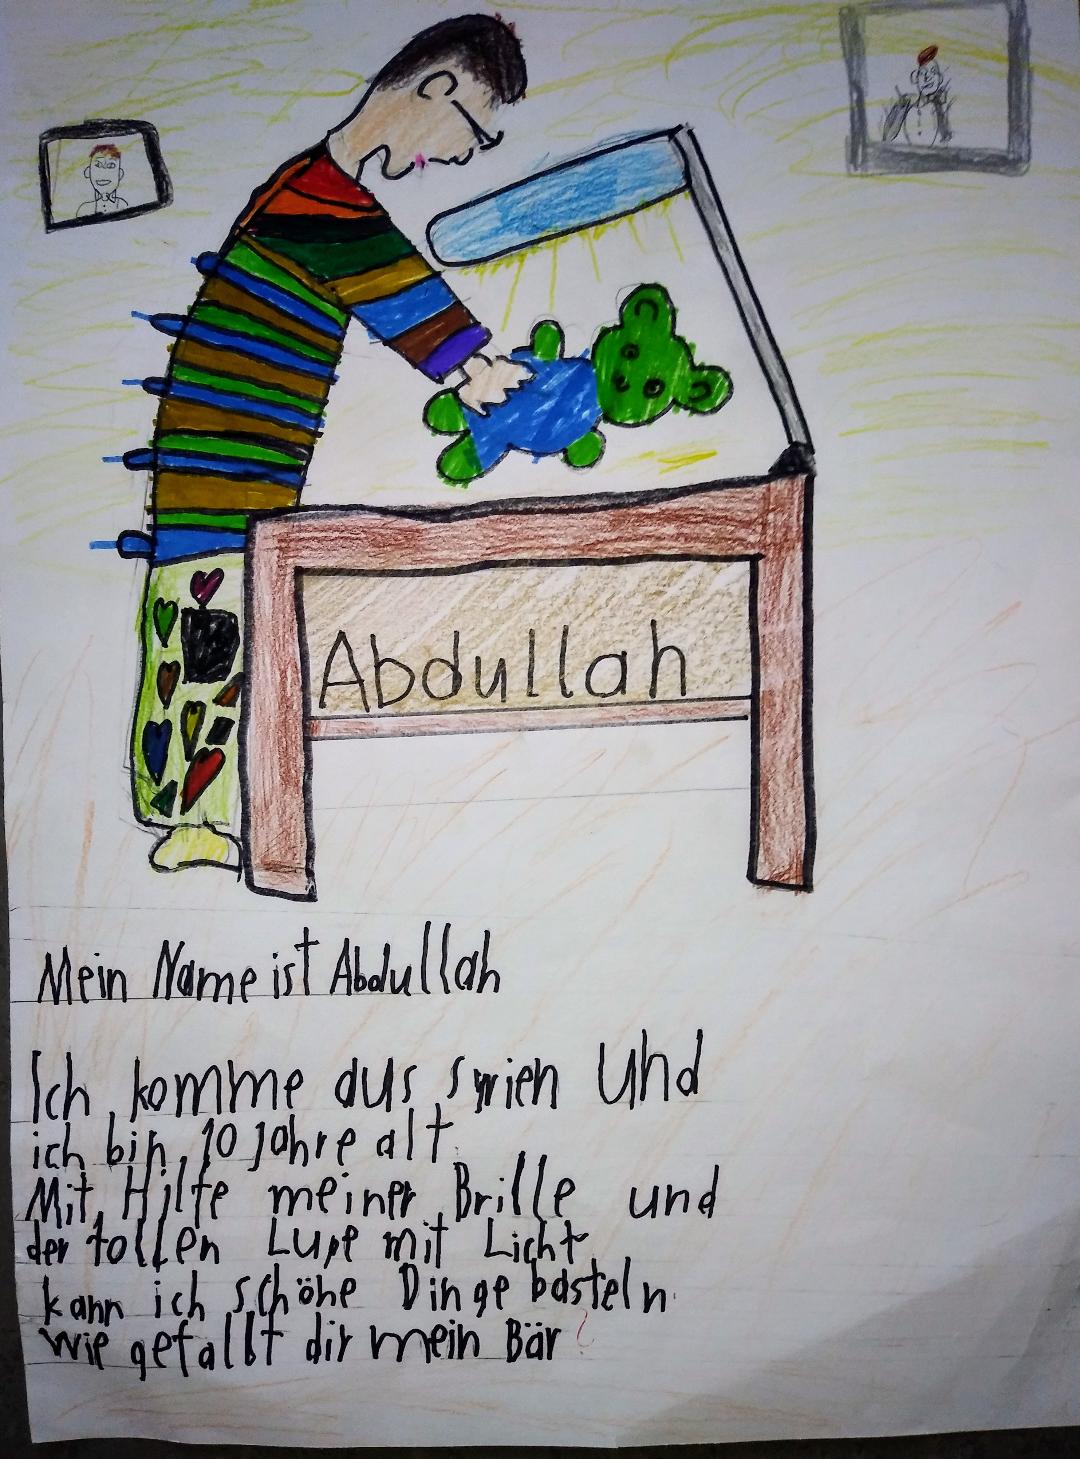 Abdullah
Mein Name ist Abdullah
Ich komme aus Syrien Und
ich bin 10 Jahre alt
Mit Hilfe meiner Brille und
der tollen Lupe mit Licht
kann ich schöne Dinge basteln.
Wie gefallt dir mein Bär?